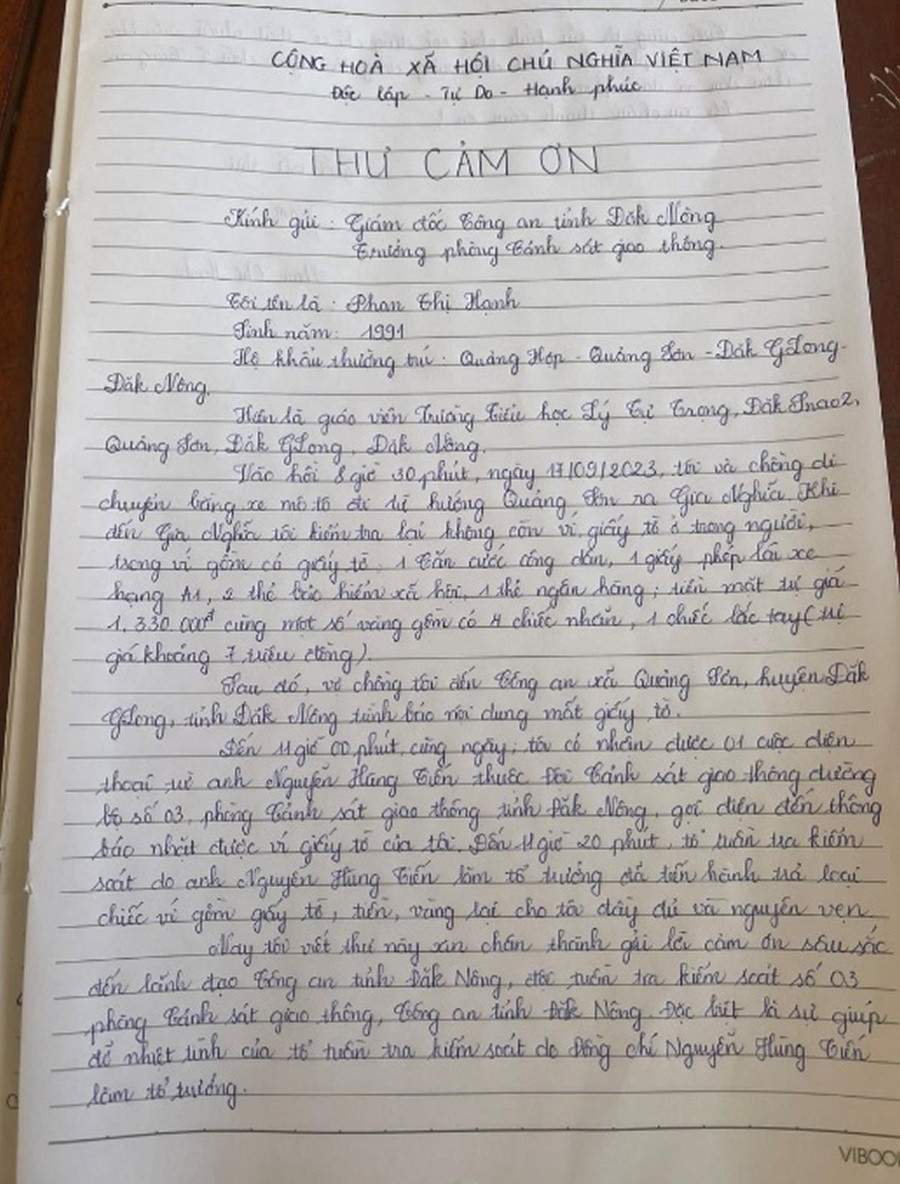 CỘNG HOÀ XÃ HỘI CHỦ NGHĨA VIỆT NAM
Độc lập - Tự Do - Hạnh phúc
THƯ CẢM ƠN
Kính gửi : Giám đốc Công an tỉnh Đăk Nông
Trưởng phòng Cảnh sát giao thông.
Tôi tên là : Phan Thị Hạnh
Sinh năm: 1991
Hộ khẩu thường trú : Quảng Hợp - Quảng Sơn - Đăk GLong -
Đăk Nông.
Hiện là giáo viên Trường Tiểu học Lý Tự Trọng, Đăk Snao2,
Quảng Sơn, Đăk GLong, Đăk Nông.
Vào hồi 8 giờ 30 phút, ngày 17/09/2023, tôi và chồng di
chuyển bằng xe mô tô đi từ hướng Quảng Sơn ra Gia Nghĩa. Khi
đến Gia Nghĩa tôi kiểm tra lại không còn ví, giấy tờ ở trong người,
trong ví gồm có giấy tờ, 1 Căn cước công dân, 1 giấy phép lái xe
hạng A1, 2 thẻ bảo hiểm xã hội, 1 thẻ ngân hàng; tiền mặt trị giá
1.330.000đ cùng một số vàng gồm có 4 chiếc nhẫn, 1 chiếc lắc tay (trị
giá khoảng 7 triệu đồng).
Sau đó, vợ chồng tôi đến Công an xã Quảng Sơn, huyện Đăk
GLong, tỉnh Đăk Nông trình báo nội dung mất giấy tờ.
Đến 11 giờ 00 phút, cùng ngày, tôi có nhận được 01 cuộc điện
thoại từ anh Nguyễn Hùng Tiến thuộc Đội Cảnh sát giao thông đường
bộ số 03, phòng Cảnh sát giao thông tỉnh Đăk Nông, gọi điện đến thông
báo nhặt được ví giấy tờ của tôi. Đến 11 giờ 20 phút, tổ tuần tra kiểm
soát do anh Nguyễn Hùng Tiến làm tổ trưởng đã tiến hành trả loại
chiếc ví gồm giấy tờ, tiền, vàng lại cho tôi đầy đủ và nguyên vẹn
Nay tôi viết thư này xin chân thành gửi lời cảm ơn sâu sắc
đến lãnh đạo Công an tỉnh Đăk Nông, đội tuần tra kiểm soát số 03
phòng Cảnh sát giao thông, Công an tỉnh Đăk Nông. Đặc biệt là sự giúp
đỡ nhiệt tình của tổ tuần tra kiểm soát do Đồng chí Nguyễn Hùng Tiến
làm tổ trưởng.